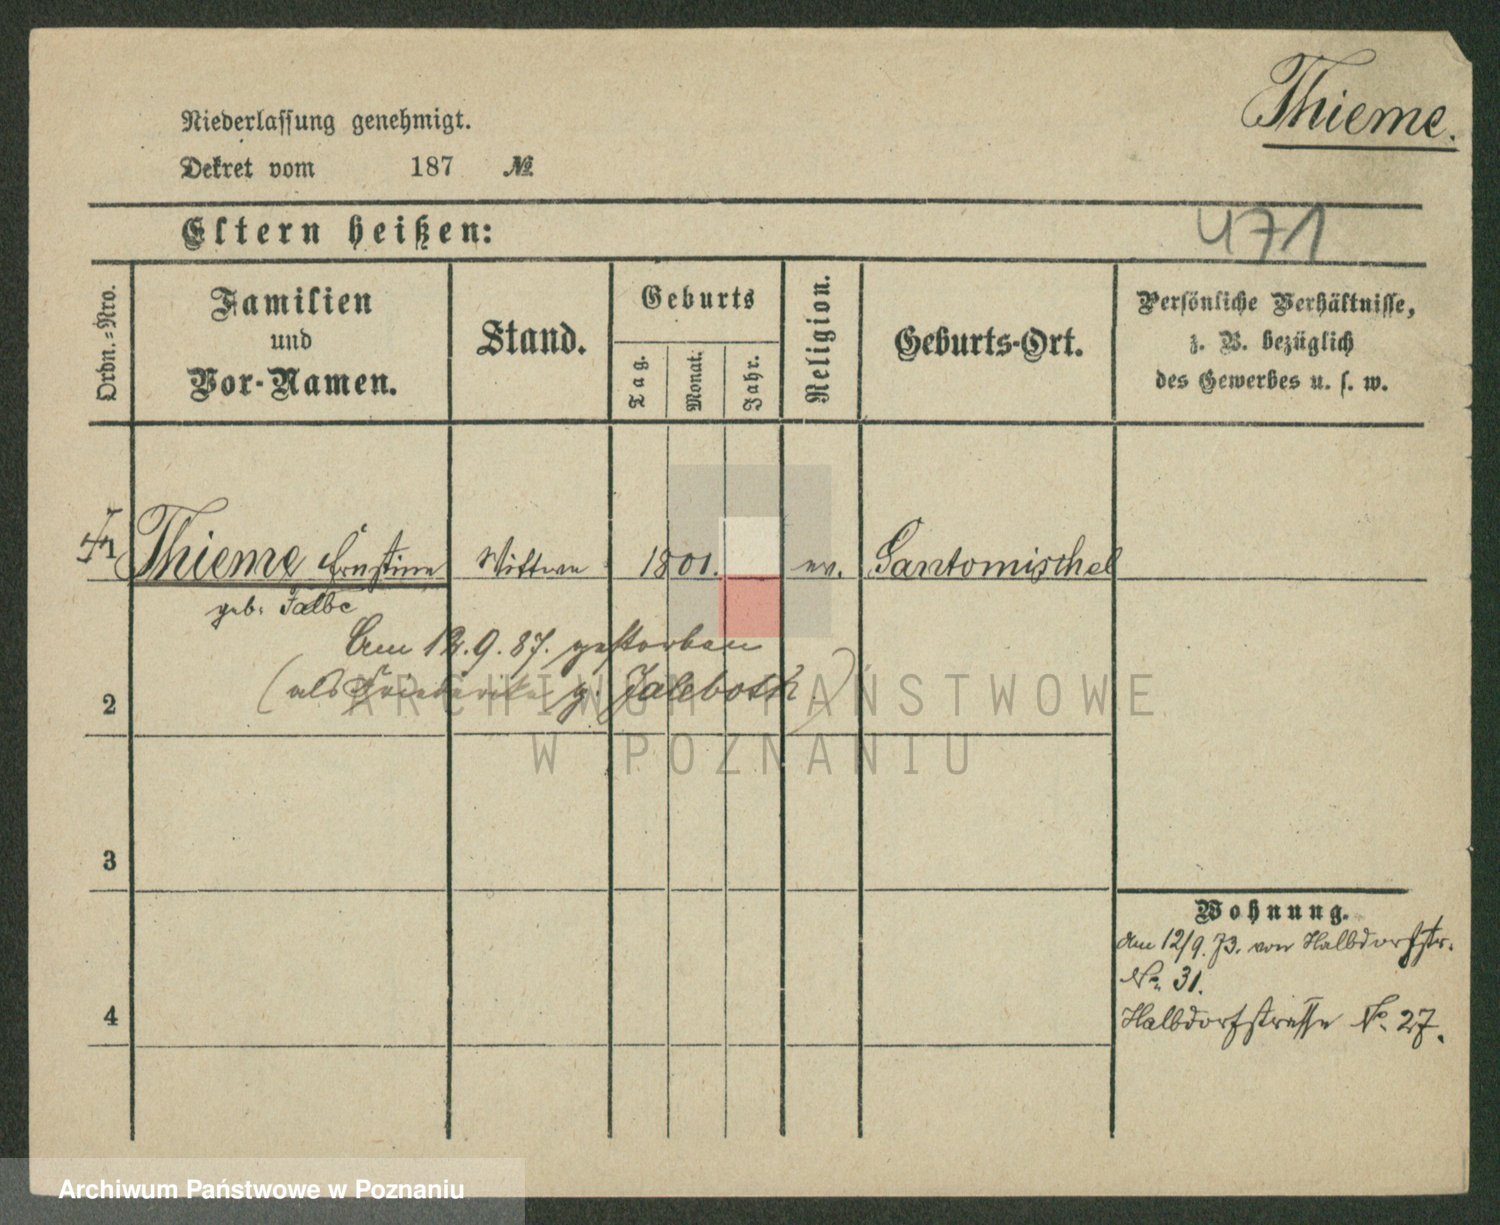 Thieme.
Niederlassung genehmigt.
Dekret vom 187 №
471
Eltern heißen:
Ordn.-Nro.
Familien
und
Vor-Namen.
Stand.
Geburts
Tag.
Monat.
Jahr.
Religion.
Geburts-Ort.
Persönliche Verhältnisse,
z. B. bezüglich
des Gewerbes u. s. w.
1 Thieme Ernstine Wittwe 1801. ev. Santomischel
geb: Falbe
Am 12.9.87. gestorben
(als Friederike g. Jaleboth.)
2
3
4
Wohnung.
Am 12/9.73. von Halbdorfstr.
No. 31.
Halbdorfstrasse No. 27.
ARCHIWUM PAŃSTWOWE
W POZNANIU
Archiwum Państwowe w Poznaniu